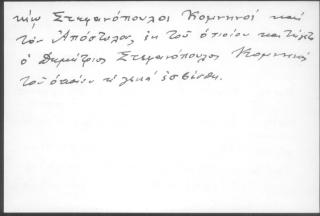 τήω Στεφανόπουλοι Κομνηνοί καί
τόν Ἀπόστολον, ἐκ τοῦ ὁποίου κατάγεται
ὁ Δημήτριος Στεφανόπουλος Κομνηνός
τοῦ ὁποίου ἡ γενεά ἐσβέσθη.